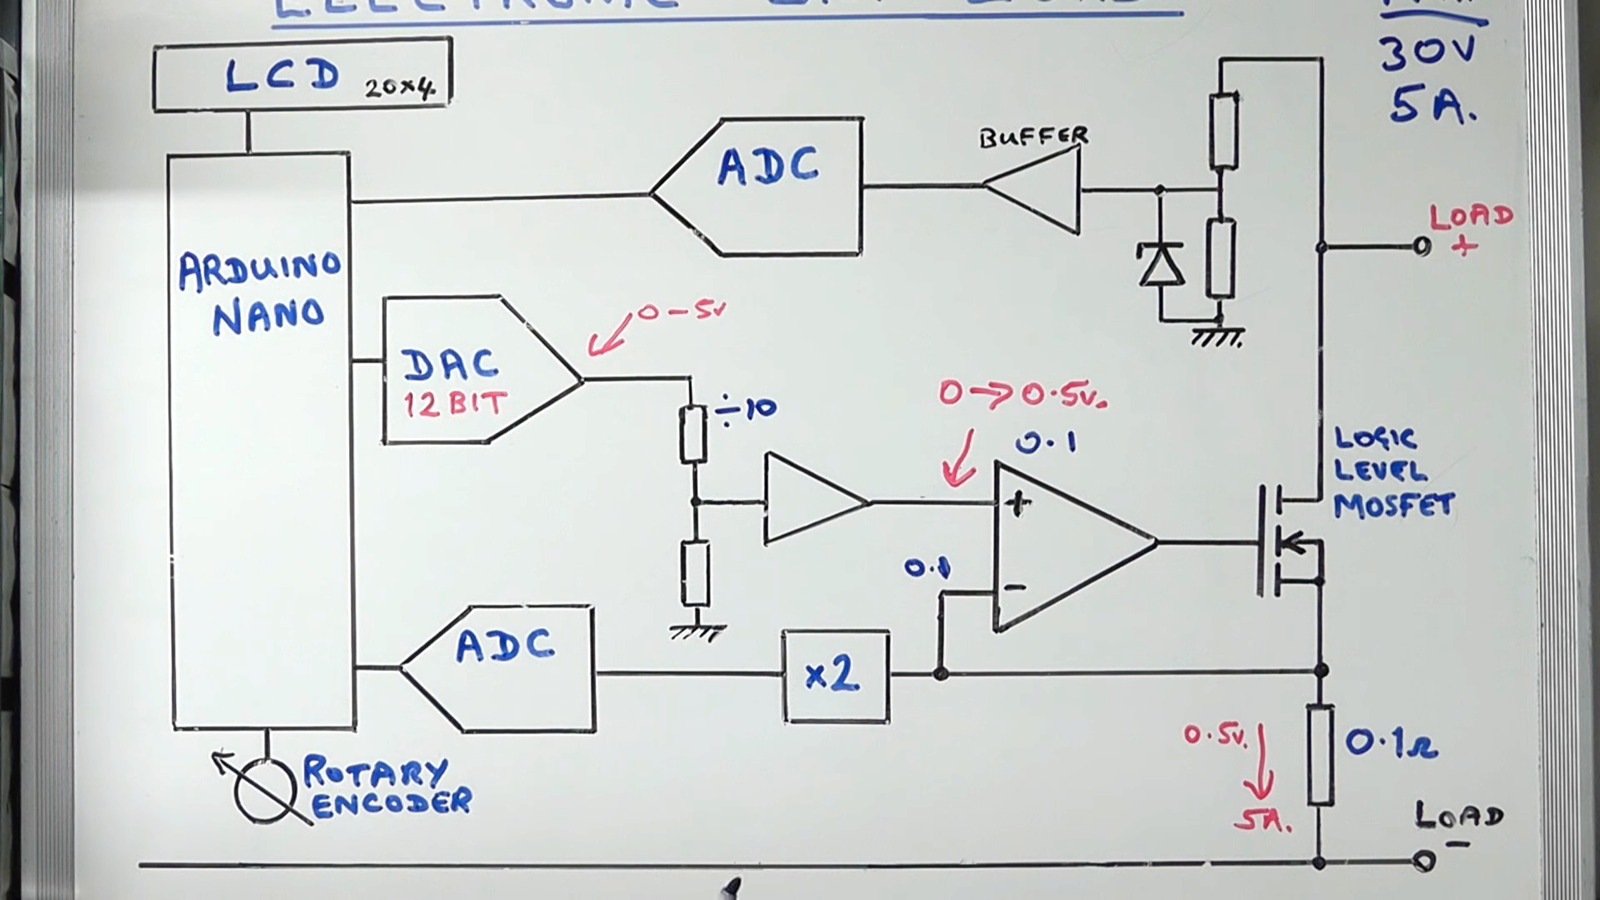 LCD 20x4.
30V
5A.
BUFFER
ADC
LOAD
+
ARDUINO
NANO
0-5v
DAC
12 BIT
÷10
0→0.5v.
0.1
LOGIC
LEVEL
MOSFET
+
0.1
-
ADC
x2
0.5v.
0.1Ω
5A.
ROTARY
ENCODER
LOAD
-